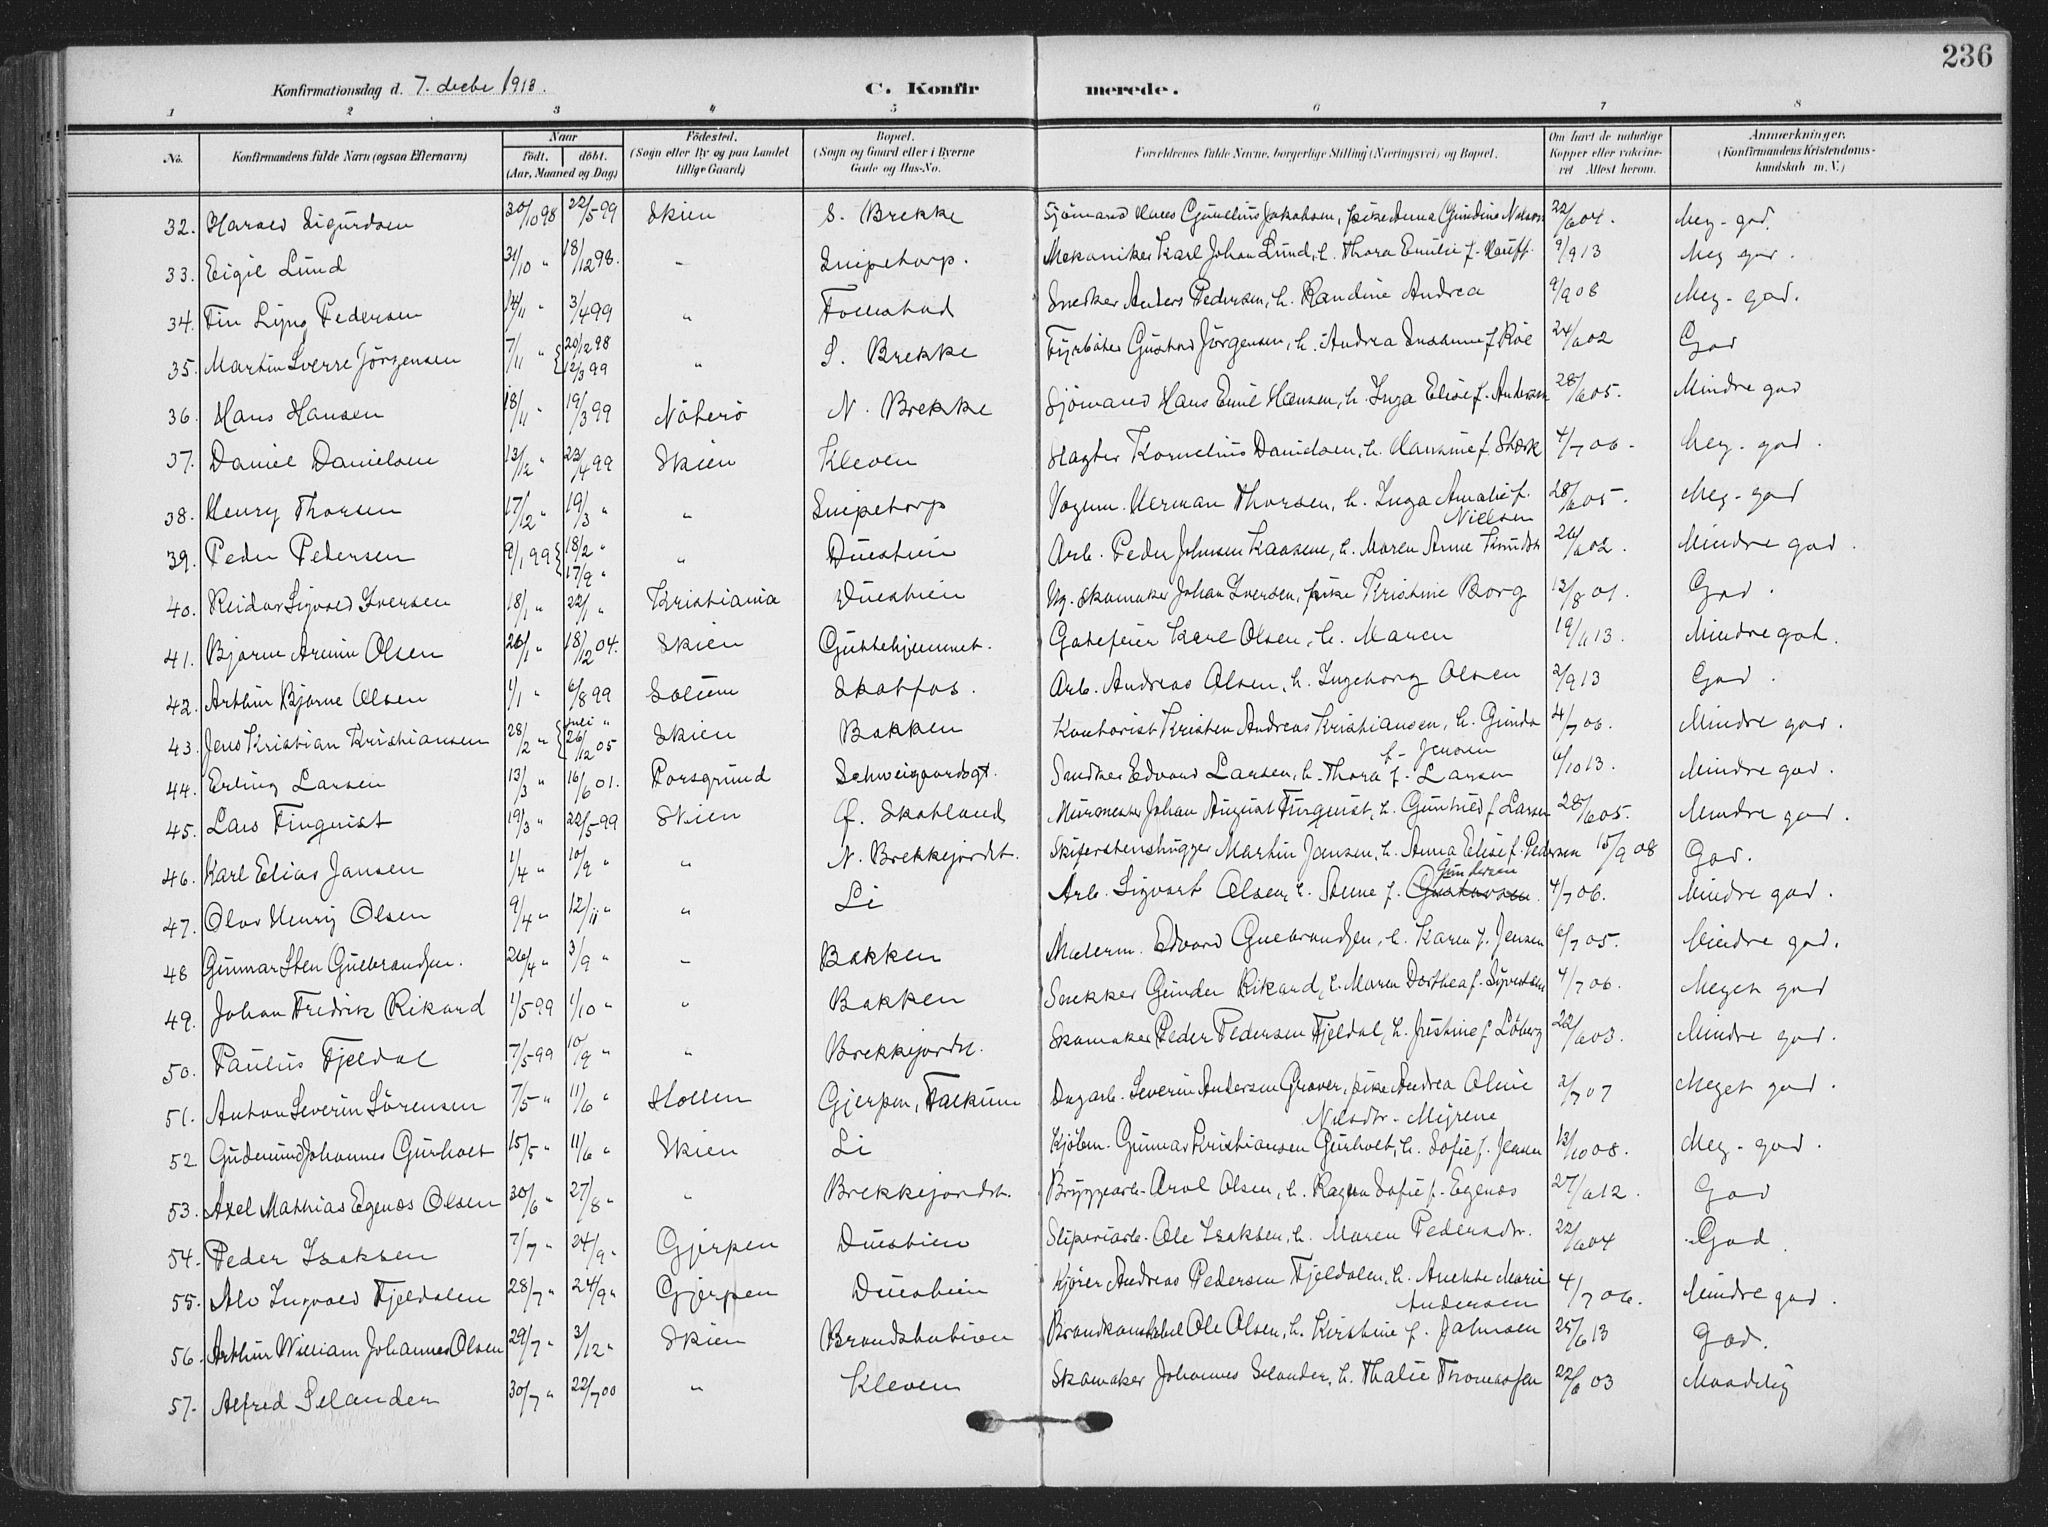 236
Konfirmationsdag d. 7. decbr 1913.
C. Konfirmerede.
1 2 3 4 5 6 7 8
No. Konfirmandens fulde Navn (ogsaa Efternavn) Naar födt. döbt. (Aar, Maaned og Dag) Födested. (Sogn eller By og paa Landet tillige Gaard) Bopæl. (Sogn og Gaard eller i Byerne Gade og Hus-No.) Forældrenes fulde Navne, borgerlige Stilling (Næringsvei) og Bopæl. Om havt de naturlige Kopper eller vakcineret. Attest herom. Anmærkninger. (Konfirmandens Kristendomskundskab m. V.)
32. Harald Sigurdsen 30/10 98 22/5 99 Skien S. Brekke Sjömand Hans Cornelius Jakobsen, pike Anna Gundine Nilsen 22/6 04. Meg. god.
33. Eigil Lund 31/10 " 18/12 98. - Snipetorp. Mekaniker Karl Johan Lund, h. Thora Emilie f. Hauff. 9/9 13 Meg god.
34. Fin Lyng Pedersen 14/11 " 3/4 99 " Follestad Snedker Anders Pedersen, h. Randine Andrea 9/9 08 Meg. god.
35. Martin Sverre Jörgensen 7/11 " { 20/2 98 12/3 99 " S. Brekke Fyrböter Gustav Jörgensen, h. Andrea Susanne f. Roe 24/6 02 God
36. Hans Hansen 18/11 " 19/3 99 Nöterö N. Brekke Sjömand Hans Emil Hansen, h. Inga Elise f. Andersen 28/6 05. Mindre god
37. Daniel Danielsen 13/12 " 23/4 99 Skien Kleven Slagter Kornelius Danielsen, h. Hansine f. Stærk 4/7 06. Meg. god.
38. Henry Thorsen 17/12 " 19/3 " " Snipetorp Vognm. Herman Thorsen, h. Inga Amalie f. Nielsen 28/6 05. Meg. god
39. Peder Pedersen 9/1 99 { 18/2 " 17/9 " " Duestien Arb. Peder Johnsen Kaasene, h. Maren Anne Knudst 26/6 02. Mindre god.
40. Reidar Sigvald Iversen 18/1 " 22/1 " Kristiania Duestien Ug. skomaker Johan Iversen, pike Kristine Borg 13/8 01. God.
41. Bjarne Armin Olsen 26/1 " 18/12 04. Skien Guttehjemmet. Gatefeier Karl Olsen, h. Maren 19/11 13. Mindre god.
42. Arthur Bjarne Olsen 1/1 " 6/8 99 Solum Skotfos. Arb. Andreas Olsen, h. Ingeborg Olsen 2/9 13 God.
43. Jens Kristian Kristiansen 28/2 " { juli " 26/12 05 Skien Bakken Kontorist Kristen Andreas Kristiansen, h. Gunda f. Jensen 4/7 06. Mindre god.
44. Erling Larsen 13/3 " 16/6 01. Porsgrund Schweigaardsgt. Snedker Edvard Larsen, h. Thora f. Larsen 6/10 13. Mindre god.
45. Lars Finquist 19/3 " 22/5 99 Skien f. Skotland Murmester Johan August Finquist, h. Guntild f. Larsen 28/6 05. Mindre god.
46. Karl Elias Jansen 1/4 " 10/9 " " N. Brekkejordet. Skiferstenshugger Martin Jansen, h. Anna Elise f. Pedersen 15/9 08 God.
47. Olav Henry Olsen 9/4 " 12/11 " " Li Arb. Sigvart Olsen, h. Stene f. Gustavsen Gundersen 4/7 06. Mindre god.
48 Gunnar Sten Gulbrandsen. 26/4 " 3/9 " - Bakken Malerm. Edvard Gulbrandsen, h. Karen f. Jensen 6/7 05. Mindre god.
49. Johan Fredrik Rikard 1/5 99 1/10 " " Bakken Snekker Gunder Rikard, h. Maren Dorthea f. Syvertsen 4/7 06. Meget god
50. Paulus Fjeldal 7/5 99 10/9 " " Brekkejordet. Skomaker Peder Pedersen Fjeldal, h. Justine f. Löberg 22/6 03. Mindre god.
51. Anton Severin Sörensen 7/5 " 11/6 " Hollen Gjerpen, Falkum Dagarb. Severin Andersen Graver, pike Andrea Oline Nilsdtr. Myrene 2/7 07 Meget god.
52 Gudmund Johannes Gurholt 15/5 " 11/6 " Skien Li Kjölm. Gunnar Kristiansen Gurholt, h. Sofie f. Jensen 13/10 08. Meg. god.
53. Axel Mathias Egenæs Olsen 30/6 " 27/8 " " Brekkejordet. Bryggearb. Arol Olsen, h. Ragna Sofie f. Egenæs 27/6 12. God
54. Peder Isaksen 7/7 " 24/9 " Gjerpen Duestien Sliperiarb. Ole Isaksen, h. Maren Pedersdtr. 22/6 04 God.
55. Alv Ingvald Fjeldalen 28/7 " 24/9 " Gjerpen Duestien Kjörer Andreas Pedersen Fjeldalen, h. Anette Marie Andersen 4/7 06. Mindre god.
56. Arthur William Johannes Olsen 29/7 " 3/12 " Skien Brandstation Brandkonstabel Ole Olsen, h. Kirstine f. Johnsen 25/6 13 God.
57. Alfred Selander 30/7 " 22/7 00 " Kleven Skomaker Johannes Selander, h. Thalie Thomassen 22/6 03 Maadelig